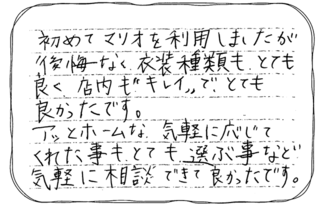 初めてマリオを利用しましたが
後悔なく、衣装種類も、とても
良く店内も〝キレイ〟で、とても
良かったです。
アットホームな、気軽に応じて
くれた事も、とても、選ぶ事など
気軽に相談できて良かったです。